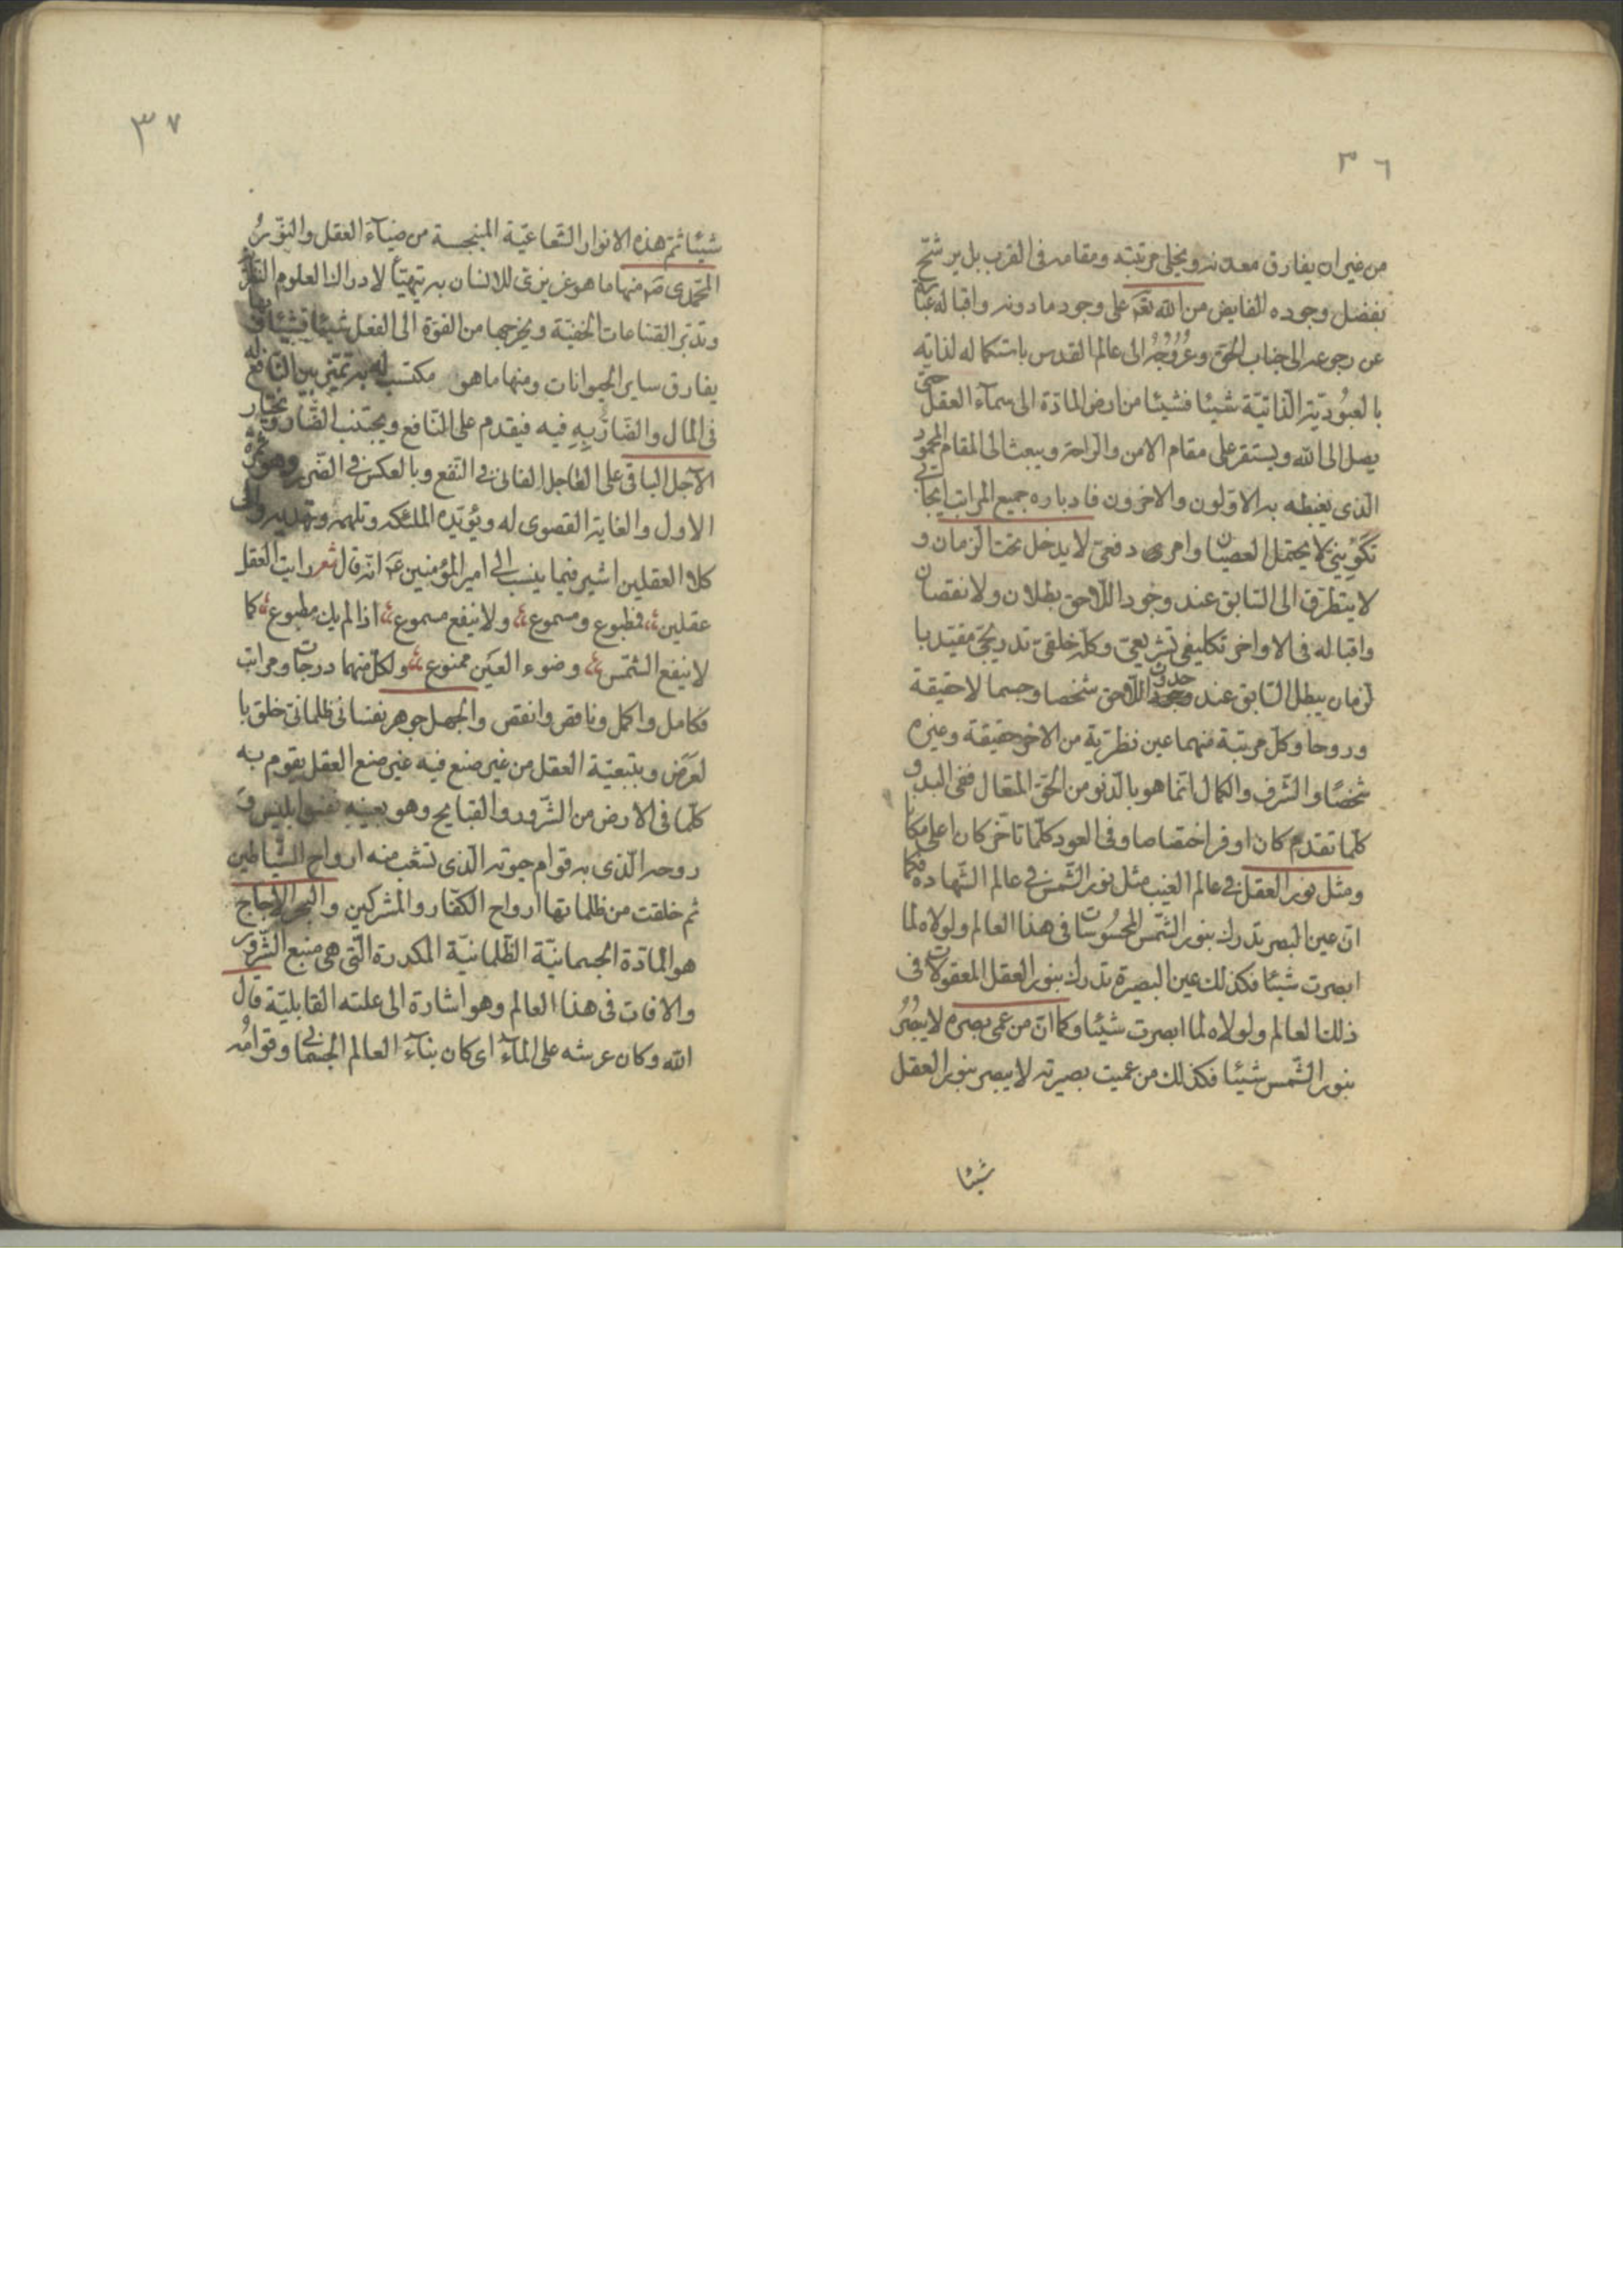 ٣٦
من غير ان يفارق معدنه ويخلى مرتبته ومقامه فى القرب بل يرشّح
بفضل وجوده الفايض من اللّه تعم على وجود ما دونه واقباله عبارة
عن رجوعه الى جناب الحق وعُرُوجُه الى عالم القدس باستكماله لذاته
بالعبُوديّة الذاتيّة شيئا فشيئا من ارض المادّة الى سمآء العقل حتى
يصل الى اللّه ويستقر على مقام الامن والرّاحة ويبعث الى المقام المحمود
الّذى يغبطه به الاوّلون والاخرون فادباره جميع المراتب ايجابى
تكوينىّ لا يحتمل العصيان وامرى دفعىّ لا يدخل تحت الزمان و
لا يتطرّق الى السّابق عند وجود اللّاحق بطلان ولا نقصان
واقباله فى الاواخر تكليفى تشريعىّ وكله خلقىّ تدريجىّ مقيّد با
لزمان يبطل السّابق عند حدوث اللّاحق شخصا وجسما لا حقيقة
وروحا وكلّ مرتبة منهما عين نظريّة من الاخر حقيقة وغيره
شخصًا والشّرف والكمال انّما هو بالدّنو من الحقّ المتعال ففى البدو
كلّما تقدم كان اوفر اختصاصا وفى العود كلّما تاخّر كان اعلى مكانا
ومثل نور العقل فى عالم الغيب مثل نور الشّمس فى عالم الشّهادة فكما
انّ عين البصر تدرك بنور الشّمس المحسُوسات فى هذا العالم ولولاه لما
ابصرت شيئا فكذلك عين البصيرة تدرك بنور العقل المعقولات فى
ذلك العالم ولولاه لما ابصرت شيئا وكما انّ من عمى بصره لا يبصُرُ
بنور الشّمس شيئا فكذلك من عميت بصيرته لا يبصر بنور العقل
شيئا
٣٧
شيئا ثمّ هذه الانوار الشّعاعيّة المنبجسة من ضيآء العقل والنّورُ
المحمّدى صَ منها ما هو غريزىّ للانسان به يتهيّأ لادراك العلوم النّظر
وتدبّر الصّناعات الخفيّة ويخرجها من القوّة الى الفعل شيئا فشيئا
يفارق ساير الحيوانات ومنها ما هو مكتسب له به تميّز بين النّافع
فى المال والضّارّ بِهِ فيه فيقدم على النّافع ويجتنب الضّار ويختار
الآجل الباقى على العاجل الفانى فى النّفع وبالعكس فى الضّرر وهو ثمرة
الاول والغاية القصوى له ويؤيّده الملئكه وتلهمه وتهديه والى
كلا العقلين اشير فيما ينسب الى امير المؤمنين عَم انّه قال شعر رايت العقل
عقلين فمطبوع ومسموع ولا ينفع مسموع اذا لم يك مطبوع كما
لا ينفع الشّمس وضوء العَين ممنوع ولكلّ منهما درجات ومراتب
فكامل واكمل وناقص وانقص والجهل جوهر نفسانى ظلمانىّ خلق با
لعَرَض وبتبعيّة العقل من غير صنع فيه غير صنع العقل يقوم به
كلّما فى الارض من الشّرور والقبايح وهو بعينهِ نفس ابليس و
روحه الّذى به قوام حيوته الّذى تشعّب منه ارواح الشّياطين
ثم خلقت من ظلماتها ارواح الكفّار والمشركين والبحر الاُجاج
هو المادّة الجسمانيّة الظّلمانيّة المكدرة الّتى هى منبع الشّرور
والافات فى هذا العالم وهو اشارة الى علته القابليّة قال
اللّه وكان عرشه على المآء اى كان بنآء العالم الجسمانى وقوامُه